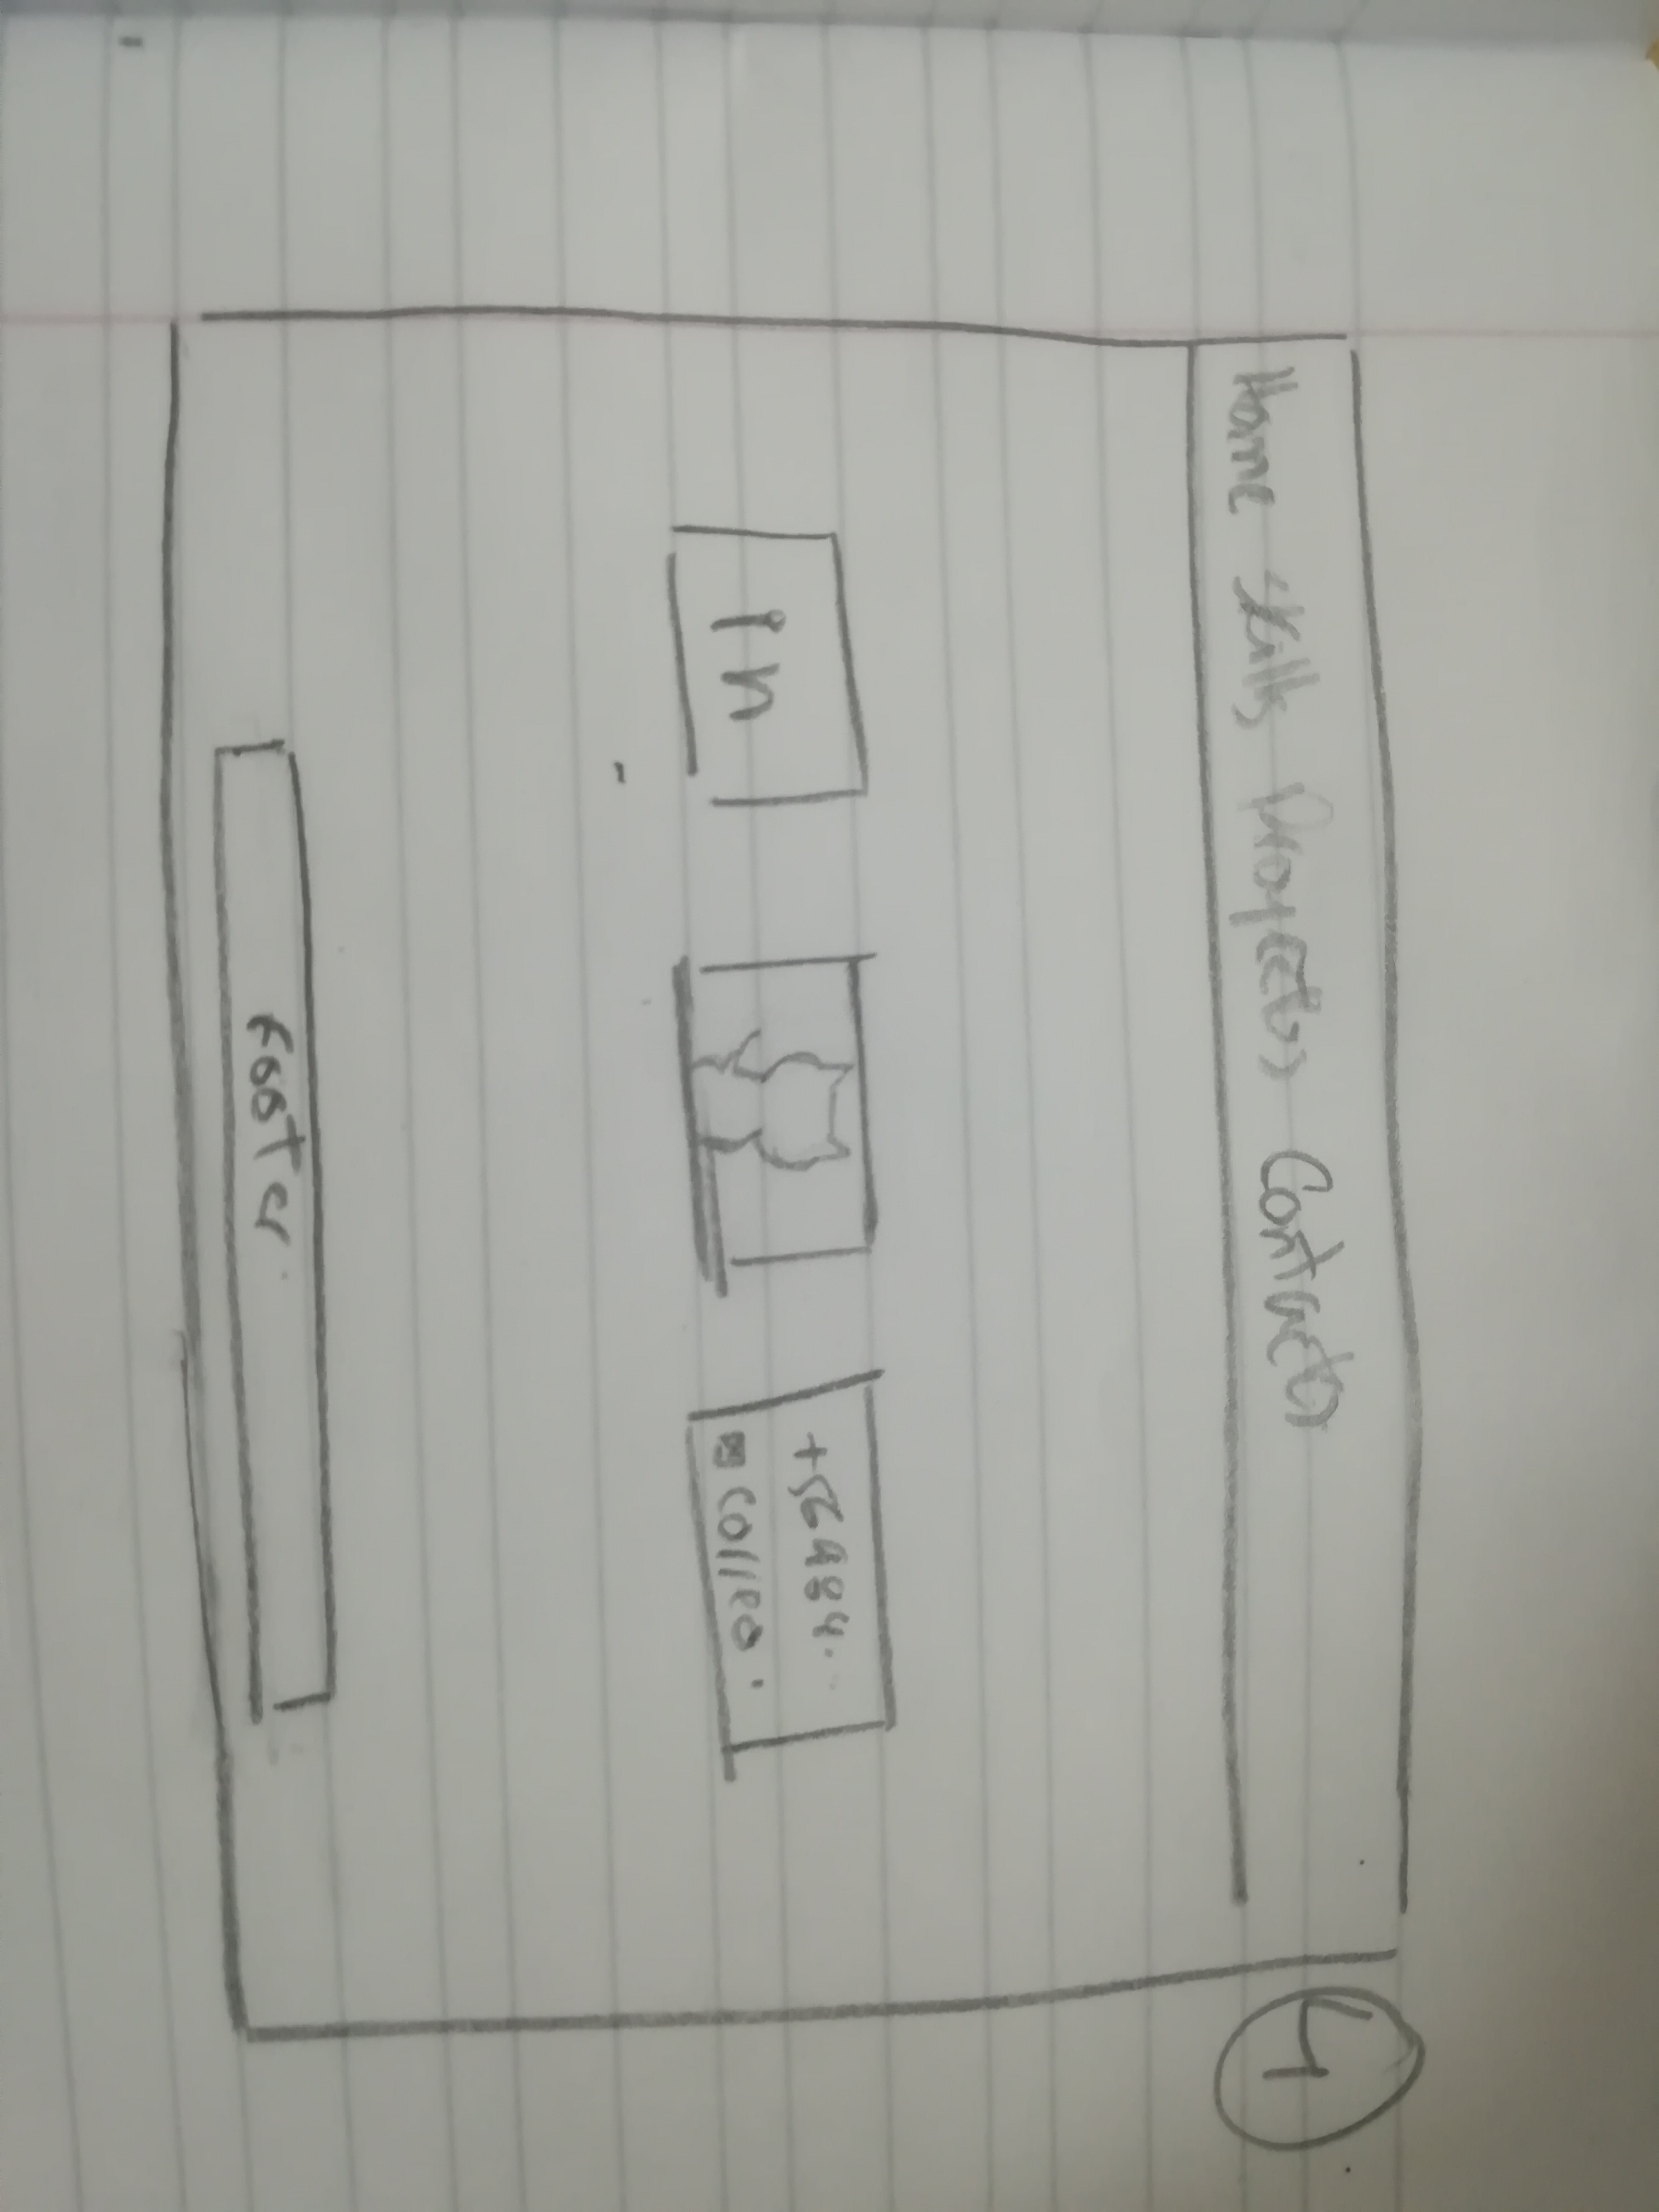 Home Skills Proyectos Contacto
4
in
+56984..
✉ correo.
footer.